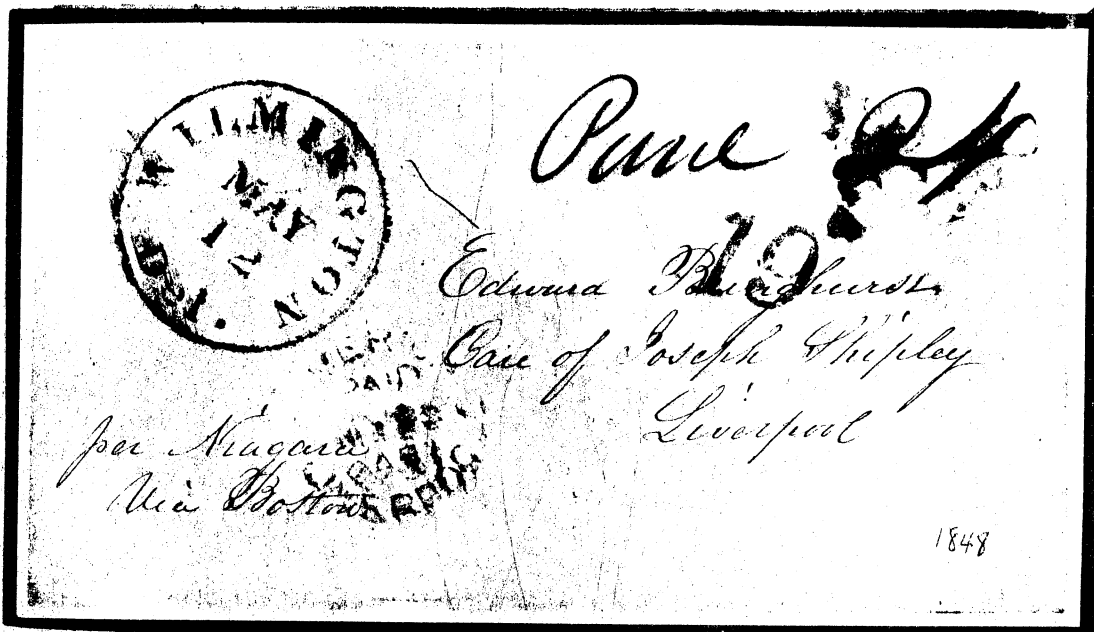 WILMINGTON
DEL.
MAY
1
Paid 24
19
Edward
Care of Joseph Shipley
Liverpool
per Niagara
Via Boston
PAID
1848